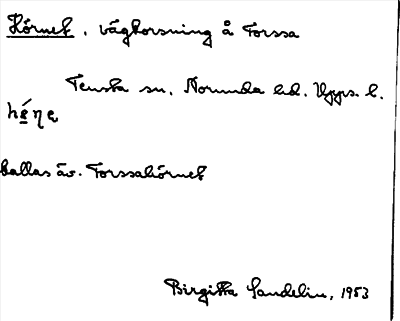 Hörnet, vägkorsning å Torssa
Tensta sn. Norunda hd. Upps. l.
kallas äv. Torssahörnet
Birgitta Sandelin, 1953